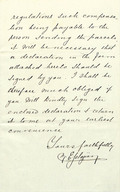 regulations such compensa-
tion being payable to the
person sending the parcels
it will be necessary that
a declaration in the form
attached hereto should be
signed by you. I shall be
therefore much obliged if
you will kindly sign the
enclosed declaration & return
it to me at your earliest
convenience
Yours faithfully